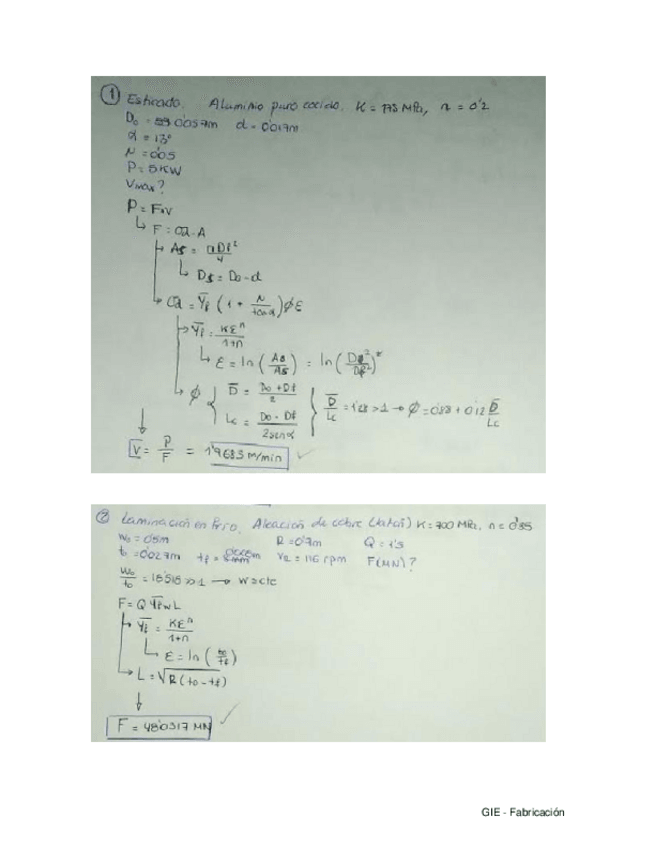 ① Estirado. Aluminio puro cocido. K = 175 MPa, n = 0'2
D₀ = 0'057m d = 0'017m
α = 13°
μ = 0'05
P = 5KW
Vmax?
P = F·v
F = σd·A
Af = πDf²/4
Df = D₀-d
σd = Ȳf (1 + μ/tanα) φ ε
Ȳf = Kεⁿ/1+n
ε = ln(A₀/Af) = ln(D₀²/Df²)
φ { D̄ = D₀+Df/2
Lc = D₀-Df/2senα } D̄/Lc = 1'28 > 1 → φ = 0'88 + 0'12 D̄/Lc
V = P/F = 1'9683 m/min
② Laminación en frío. Aleación de cobre (latón) K = 700 MPa, n = 0'35
W₀ = 0'5m R = 0'7m Q = 1'5
t₀ = 0'027m tf = VR = 116 rpm F(MN)?
W₀/t₀ = 18'518 >> 1 → W = cte
F = Q Ȳf w L
Ȳf = Kεⁿ/1+n
ε = ln(t₀/tf)
L = √R(t₀-tf)
F = 48'0317 MN
GIE - Fabricación